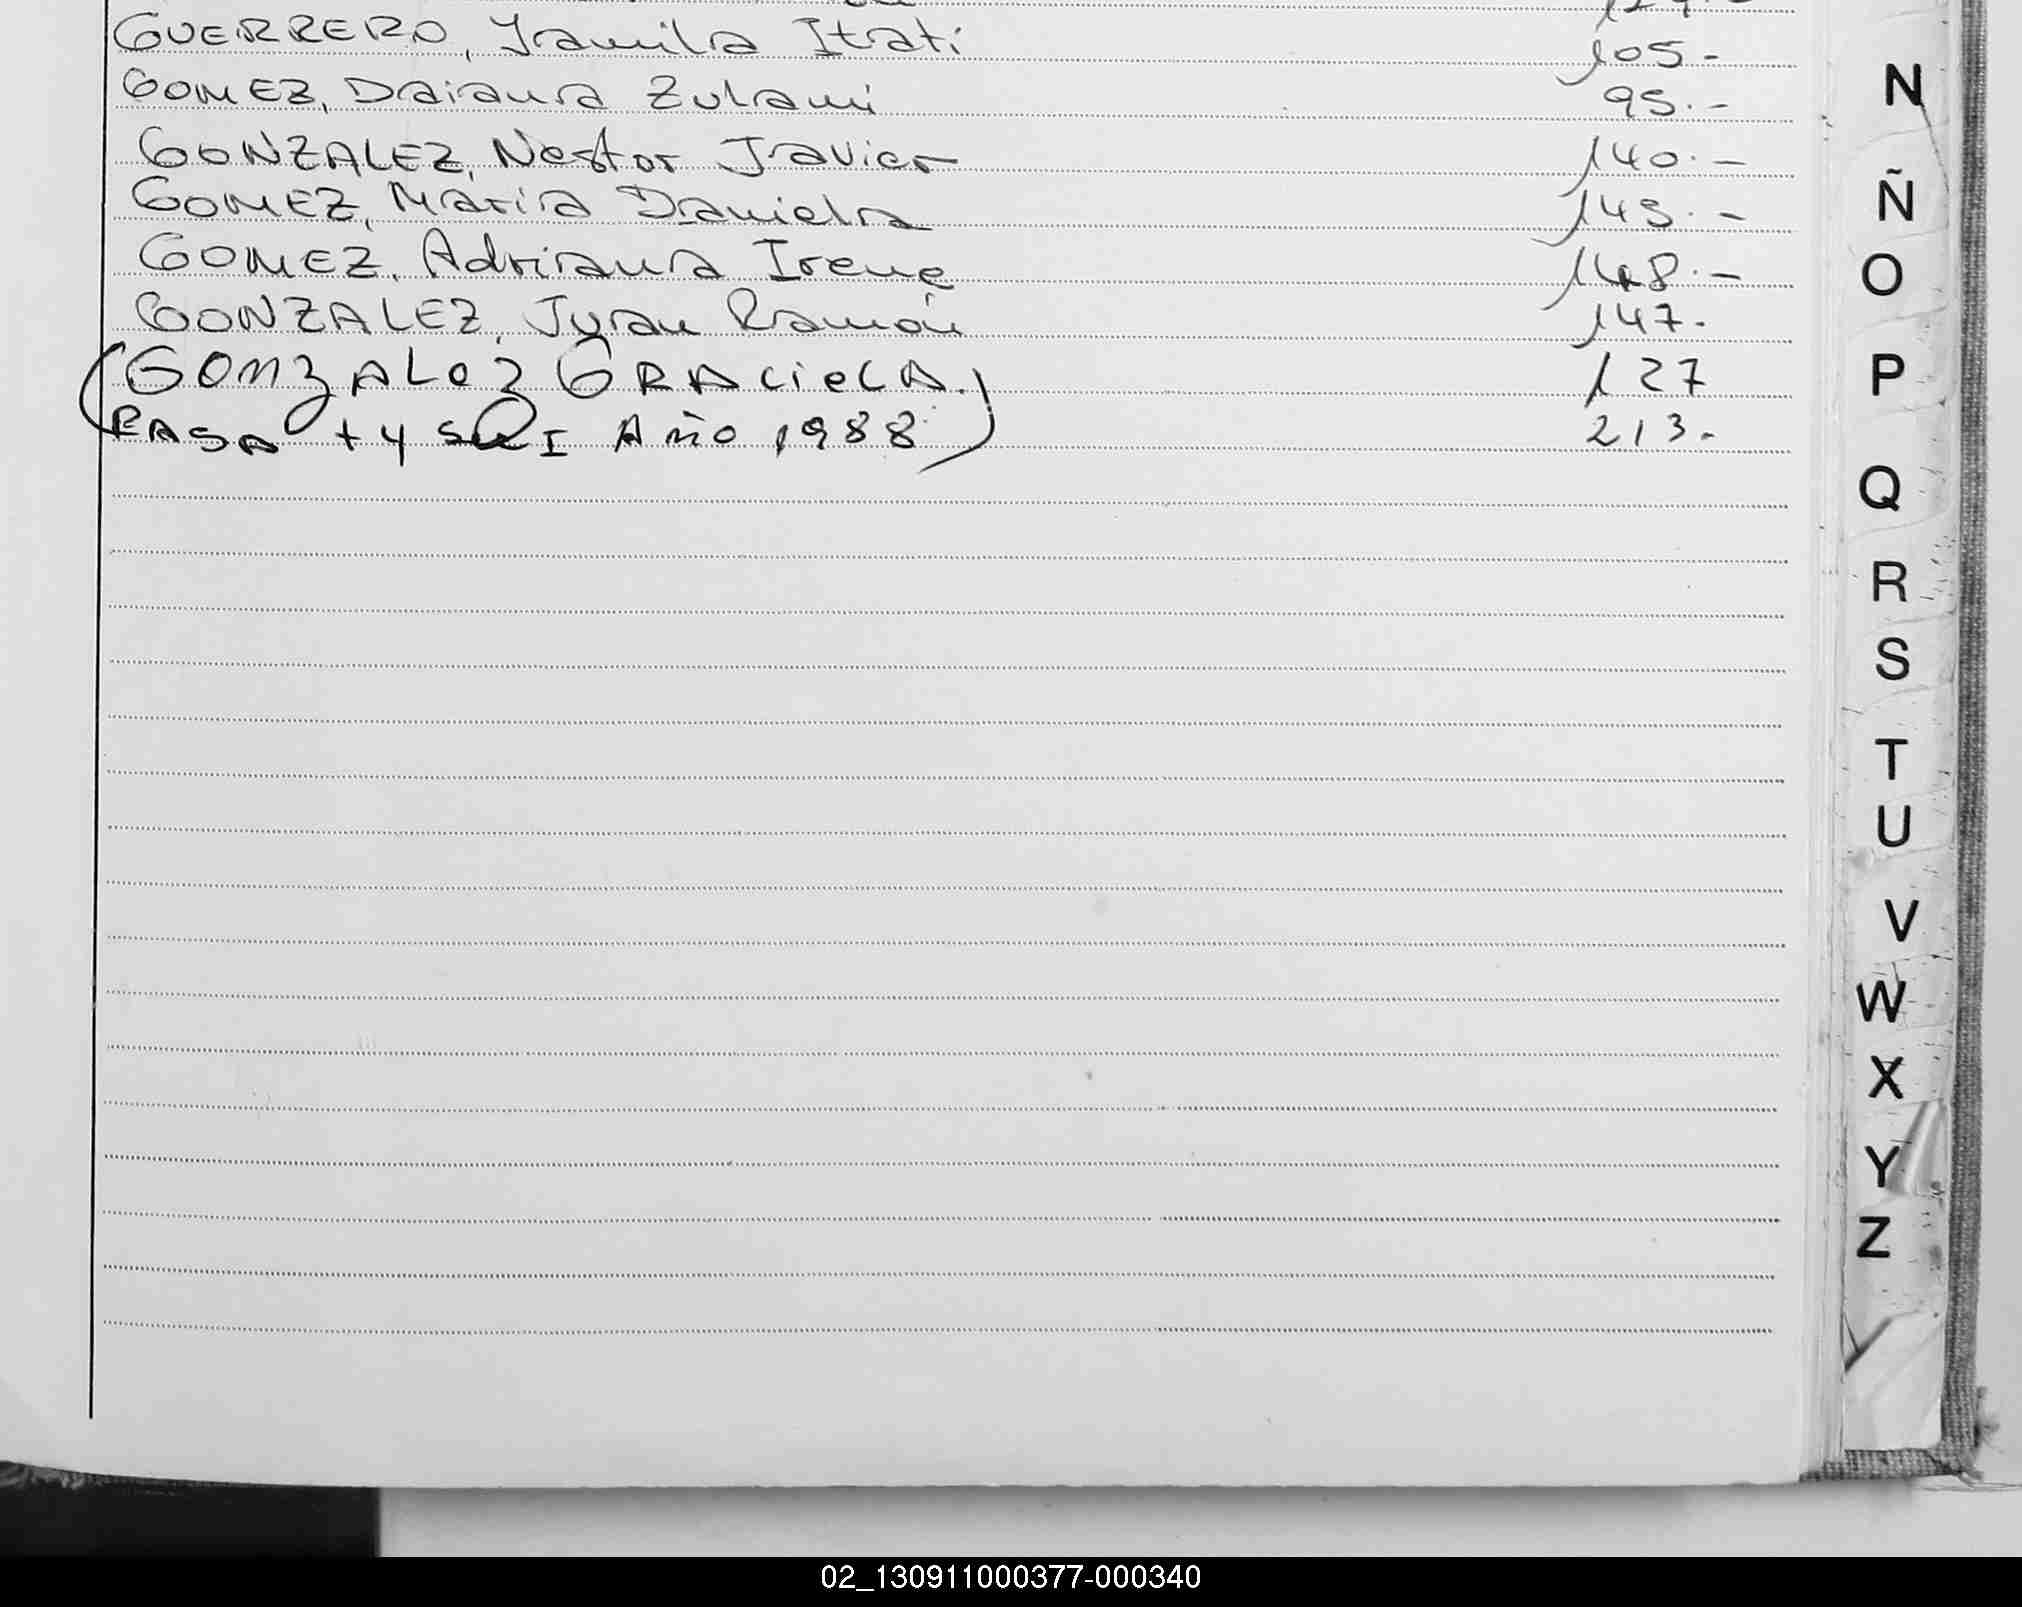 GUERRERO, Jamila Itatí 105.-
GOMEZ, Daiana Zulami 95.-
GONZALEZ, Nestor Javier 140.-
GOMEZ, Maria Daniela 145.-
GOMEZ, Adriana Irene 148.-
GONZALEZ, Juan Ramón 147.-
(GONZALEZ GRACIELA.) 127
PASA t 4 I Año 1988) 213.-
N
Ñ
O
P
Q
R
S
T
U
V
W
X
Y
Z
02_130911000377-000340